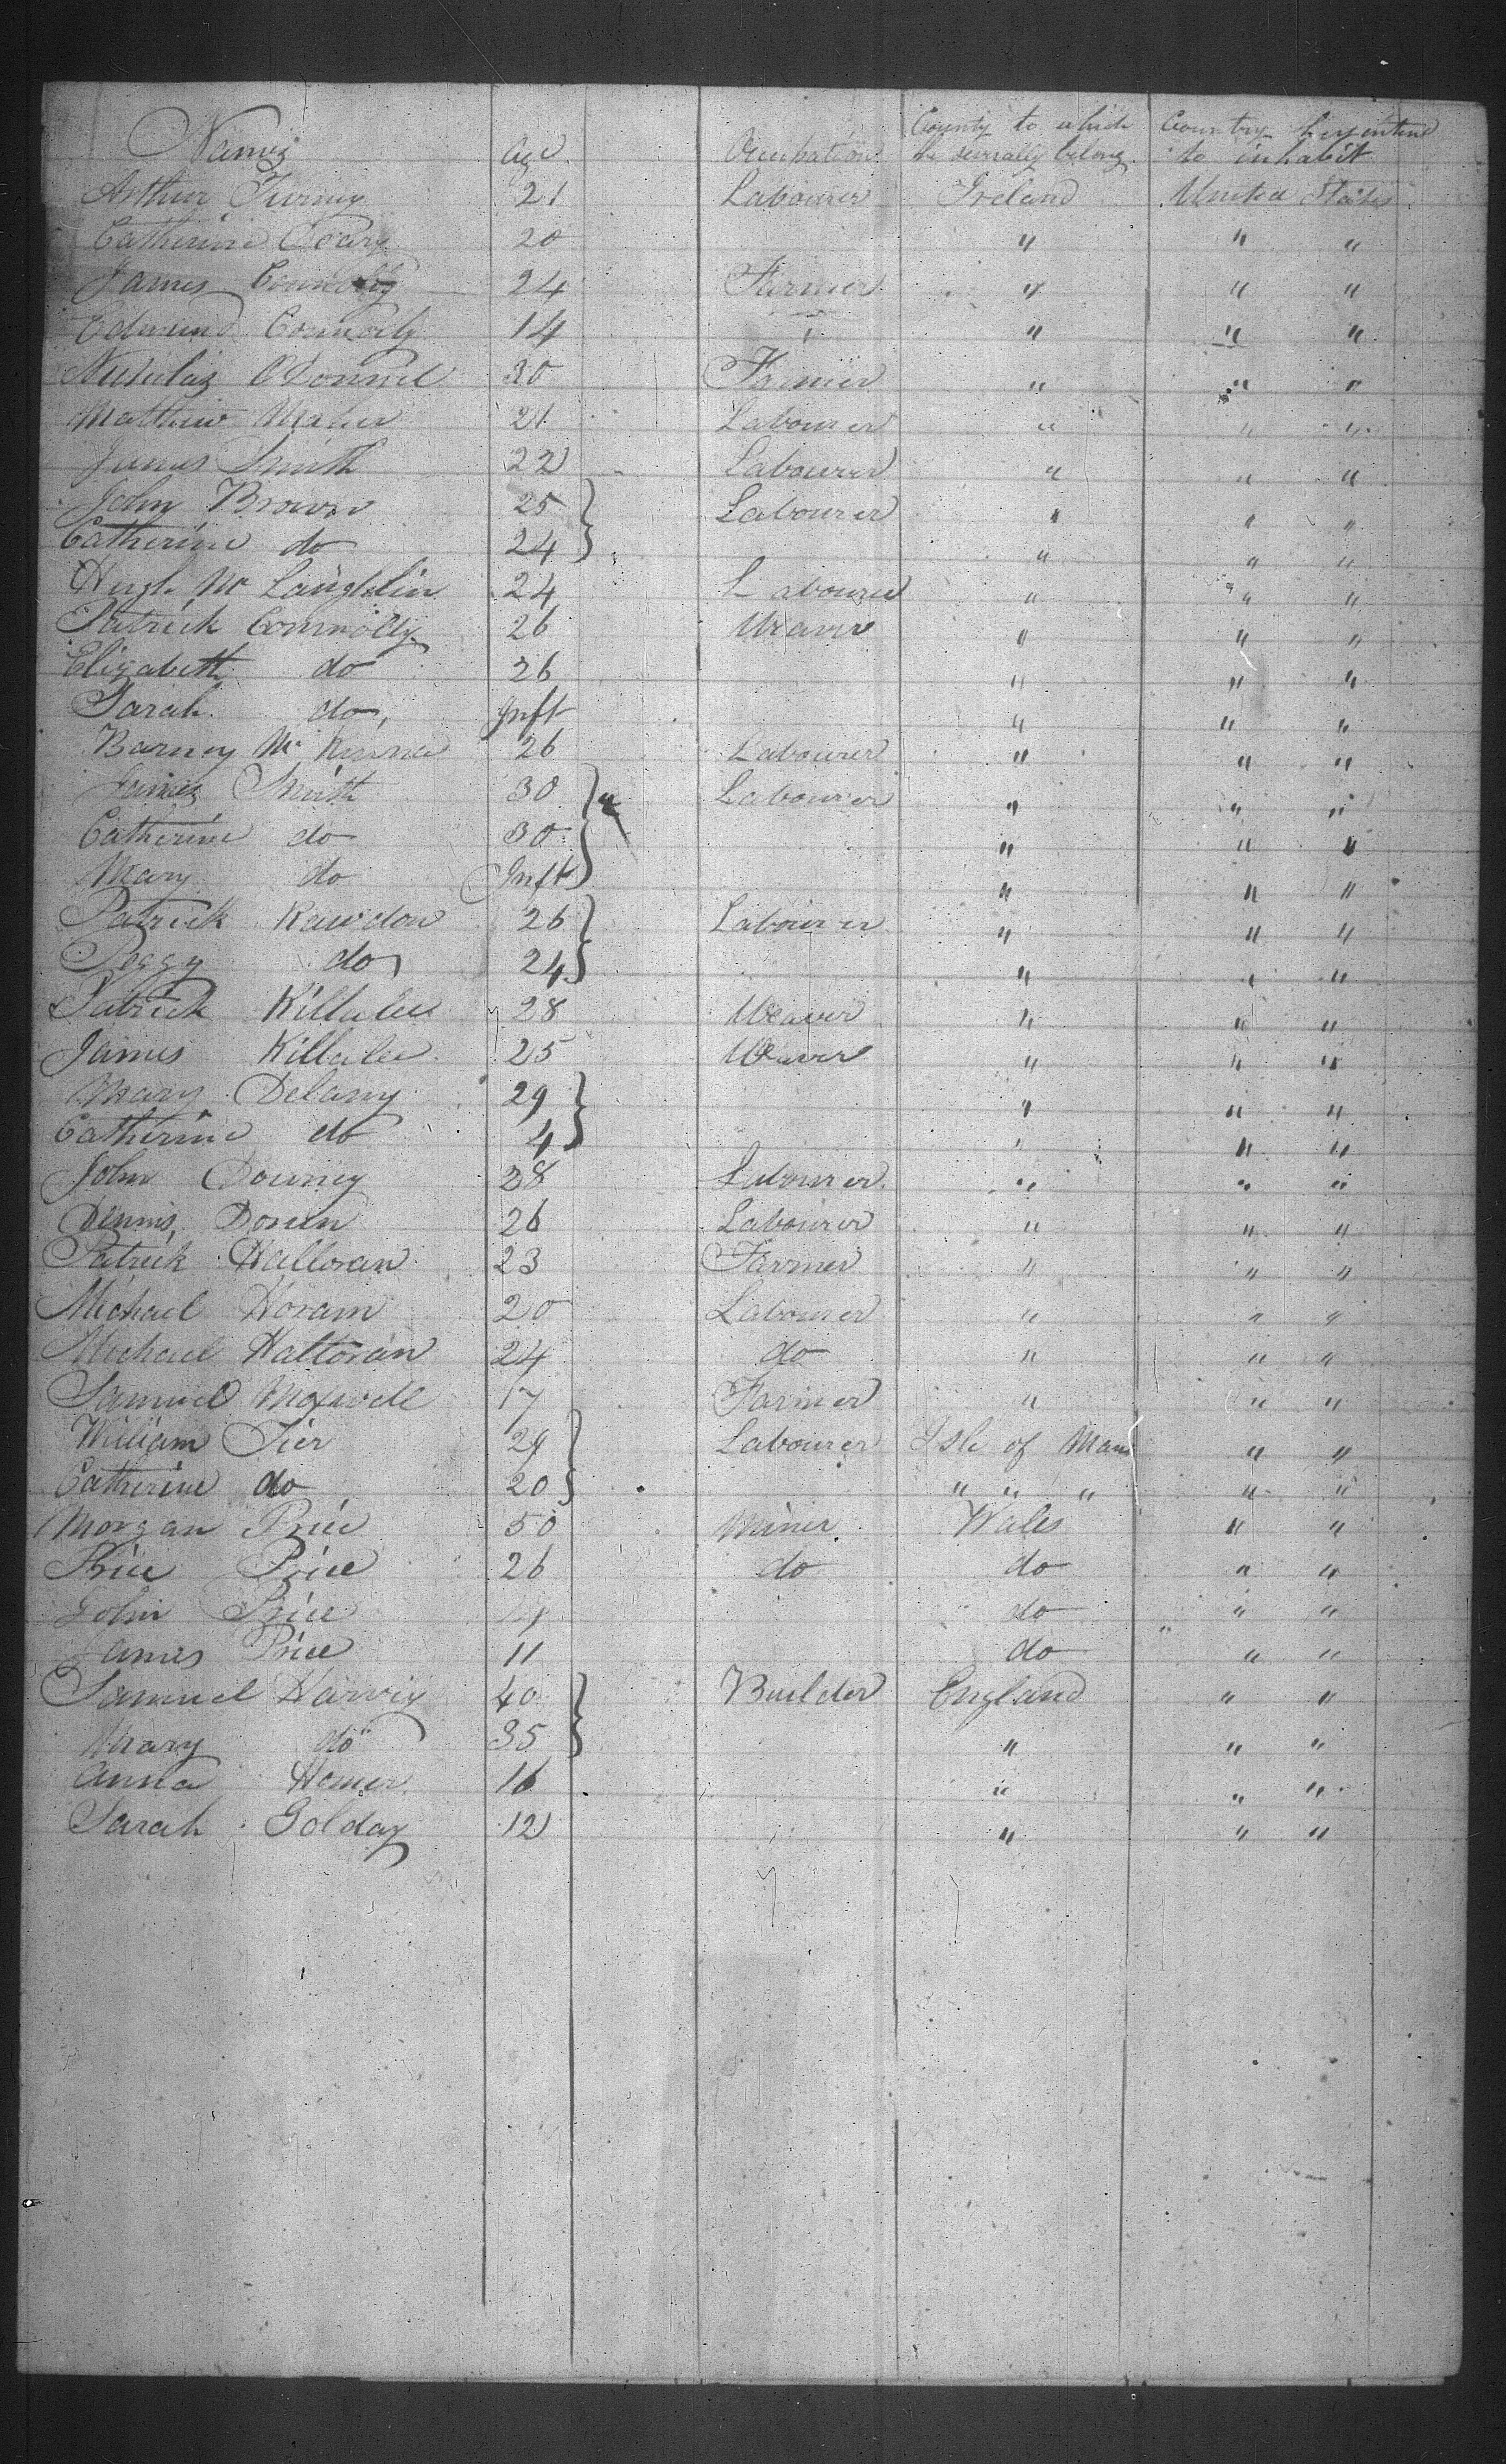 Names Age Occupation County to which he severally belong Country they intend to inhabit
Arthur 21 Labourer Ireland United States
Catherine Leary 20 " " "
James Connolly 24 Farmer " " "
Edmund Connolly 14 " " " "
Nicholas O'Donnel 30 Farmer " " "
Matthew Maher 21 Labourer " " "
James Smith 22 Labourer " " "
John Brown 25 Labourer " " "
Catherine do 24 " " "
Hugh Mc Laughlin 24 Labourer " " "
Patrick Connolly 26 Weaver " " "
Elizabeth do 26 " " "
Sarah do Inft " " "
Barney Mc Kenna 26 Labourer " " "
James Smith 30 Labourer " " "
Catherine do 30 " " "
Mary do Inft " " "
Patrick Rawdon 26 Labourer " " "
Peggy do 24 " " "
Patrick Killalee 28 Weaver " " "
James Killalee 25 Weaver " " "
Mary Delany 29 " " "
Catherine do 4 " " "
John Downey 28 Labourer " " "
Dennis 26 Labourer " " "
Patrick Halloran 23 Farmer " " "
Michael Horam 20 Labourer " " "
Michael Halloran 24 do " " "
Samuel Maxwell 17 Farmer " " "
William Tier 29 Labourer Isle of Man " "
Catherine do 20 " " " " "
Morgan Price 50 Miner Wales " "
Price 26 do do " "
John Price do " "
James Price 11 do " "
Samuel 40 Builder England " "
Mary do 35 " " "
Anna Homer 16 " " "
Sarah Golday 12 " " "